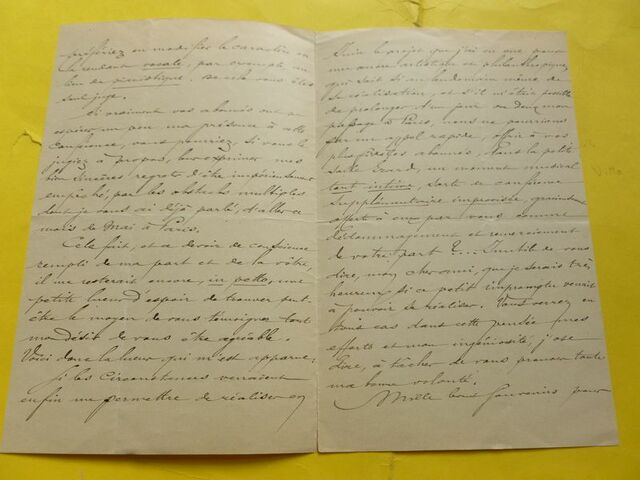 préfériez en modifier le caractère en
le rendant vocale, par exemple, au
lieu de pianistique, serait vous êtes
seul juge.
Si vraiment vos abonnés ont pu
espérer un peu ma présence à cette
conférence, vous pourriez, si vous le
jugiez à propos, leur exprimer mes
bien sincères regrets d'être impérieusement
empêché, par les obstacles multiples
dont je vous ai déjà parlé, d'aller ce
mois de Mai à Paris.
Cela fait, et ce devoir de conscience
rempli de ma part et de la vôtre,
il me resterait encore, in petto, une
petite lueur d'espoir de trouver peut-
être le moyen de vous témoigner tout
mon désir de vous être agréable.
Voici donc la lueur qui m'est apparue,
si les circonstances venaient
enfin me permettre de réaliser en
Juin le projet que j'ai en vue pour
une œuvre artistique et philanthropique,
qui sait si au lendemain même de
sa réalisation, et s'il m'était possible
de prolonger d'un jour ou deux mon
passage à Paris, nous ne pourrions
sur un appel rapide, offrir à vos
plus fidèles abonnés, dans la petite
salle Erard, un moment musical
tout intime, sorte de conférence
supplémentaire improvisée, gracieusement
offert à eux par vous comme
dédommagement et remerciement
de votre part ?... Inutile de vous
dire, mon cher ami, que je serais très
heureux si ce petit impromptu venait
à pouvoir se réaliser. Vous verrez en
tous cas dans cette pensée mes
efforts et mon ingéniosité, j'ose
dire, à tâcher de vous prouver toute
ma bonne volonté.
Mille bons souvenirs pour